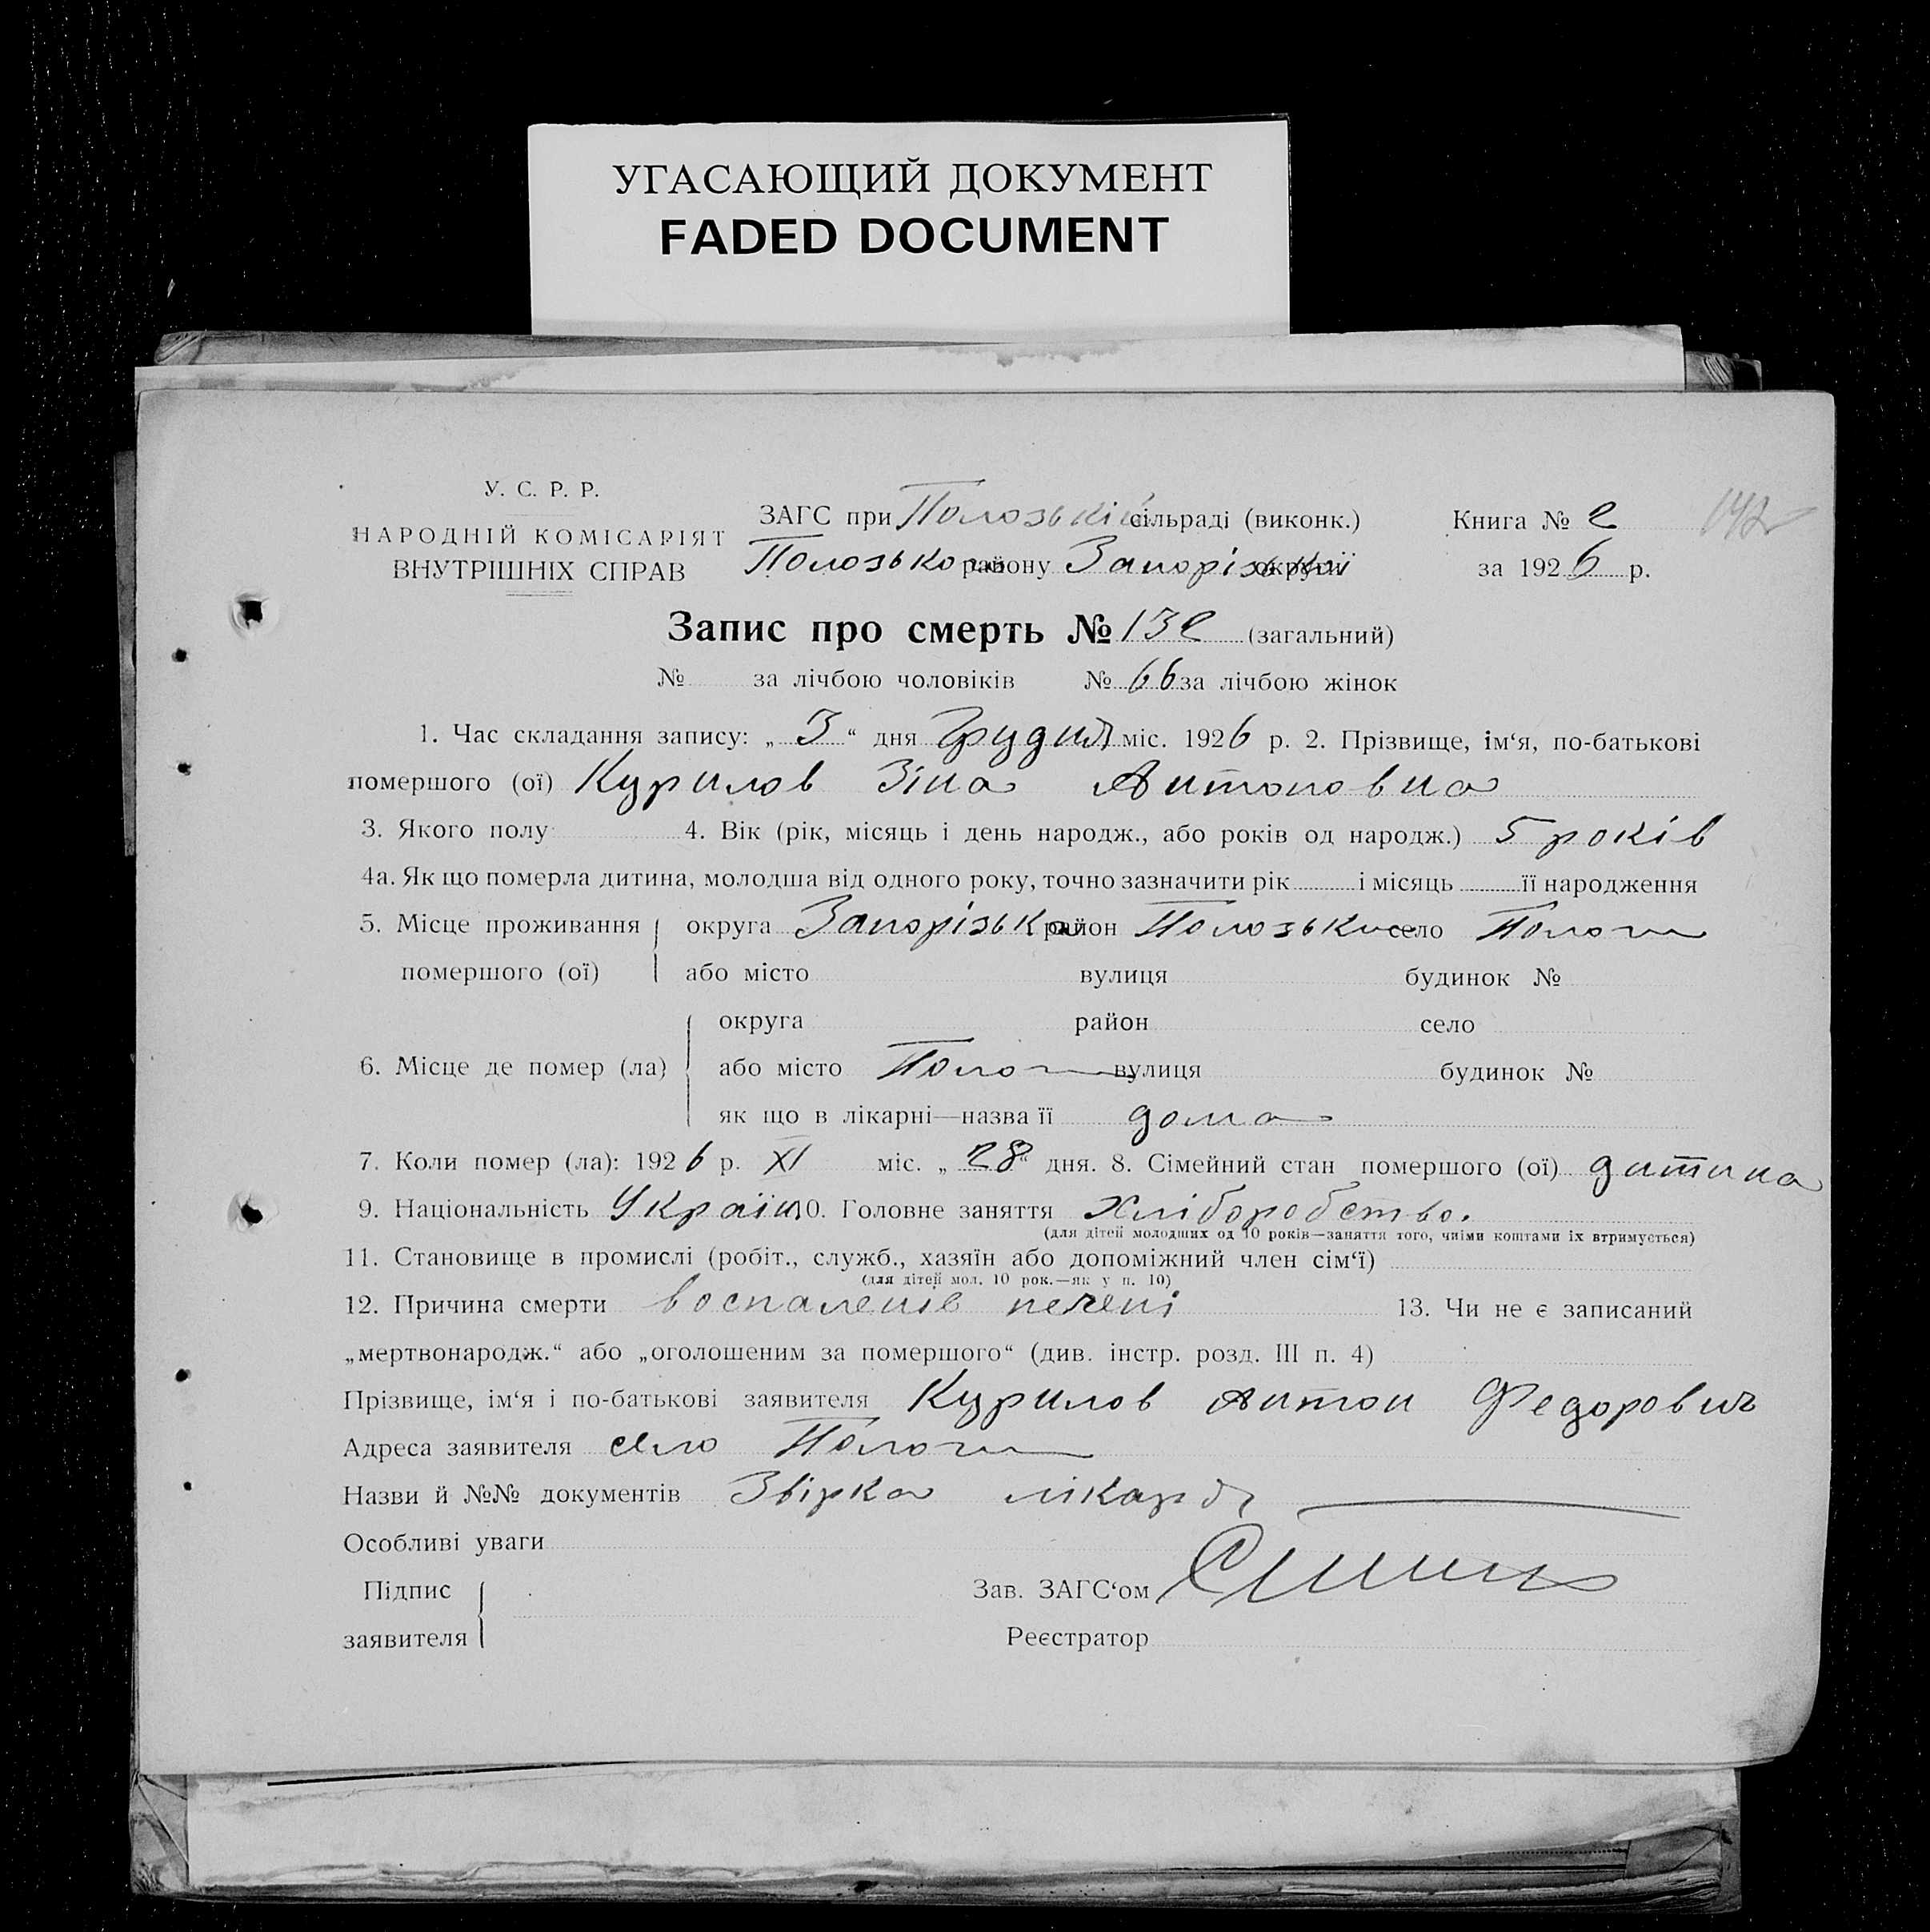 УГАСАЮЩИЙ ДОКУМЕНТ
FADED DOCUMENT
У. С. Р. Р.
НАРОДНІЙ КОМІСАРІЯТ
ВНУТРІШНІХ СПРАВ
ЗАГС при Полозькій сільраді (виконк.)
Полозького району Запорізької округи
Книга № 2
за 1926 р.
Запис про смерть № 132 (загальний)
№ за лічбою чоловіків № 66 за лічбою жінок
1. Час складання запису: „ 3 “ дня Грудня міс. 1926 р. 2. Прізвище, ім‘я, по-батькові
помершого (ої) Курилов Зіна Антоновна
3. Якого полу 4. Вік (рік, місяць і день народж., або років од народж.) 5 років
4а. Як що померла дитина, молодша від одного року, точно зазначити рік і місяць її народження
5. Місце проживання округа Запорізька район Полозький село Пологи
помершого (ої) або місто вулиця будинок №
округа район село
6. Місце де помер (ла) або місто Пологи вулиця будинок №
як що в лікарні—назва її дома
7. Коли помер (ла): 1926 р. XI міс. „ 28 “ дня. 8. Сімейний стан помершого (ої) дитина
9. Національність Україн 10. Головне заняття Хліборобство.
(для дітей молодших од 10 років—заняття того, чиїми коштами їх втримується)
11. Становище в промислі (робіт., служб., хазяїн або допоміжний член сім‘ї)
(для дітей мол. 10 рок.—як у п. 10)
12. Причина смерти воспаленів печені 13. Чи не є записаний
„мертвонародж.“ або „оголошеним за помершого“ (див. інстр. розд. III п. 4)
Прізвище, ім‘я і по-батькові заявителя Курилов Антон Федорович
Адреса заявителя село Пологи
Назви й №№ документів Звірка лікаря
Особливі уваги
Підпис
заявителя
Зав. ЗАГС‘ом
Реєстратор